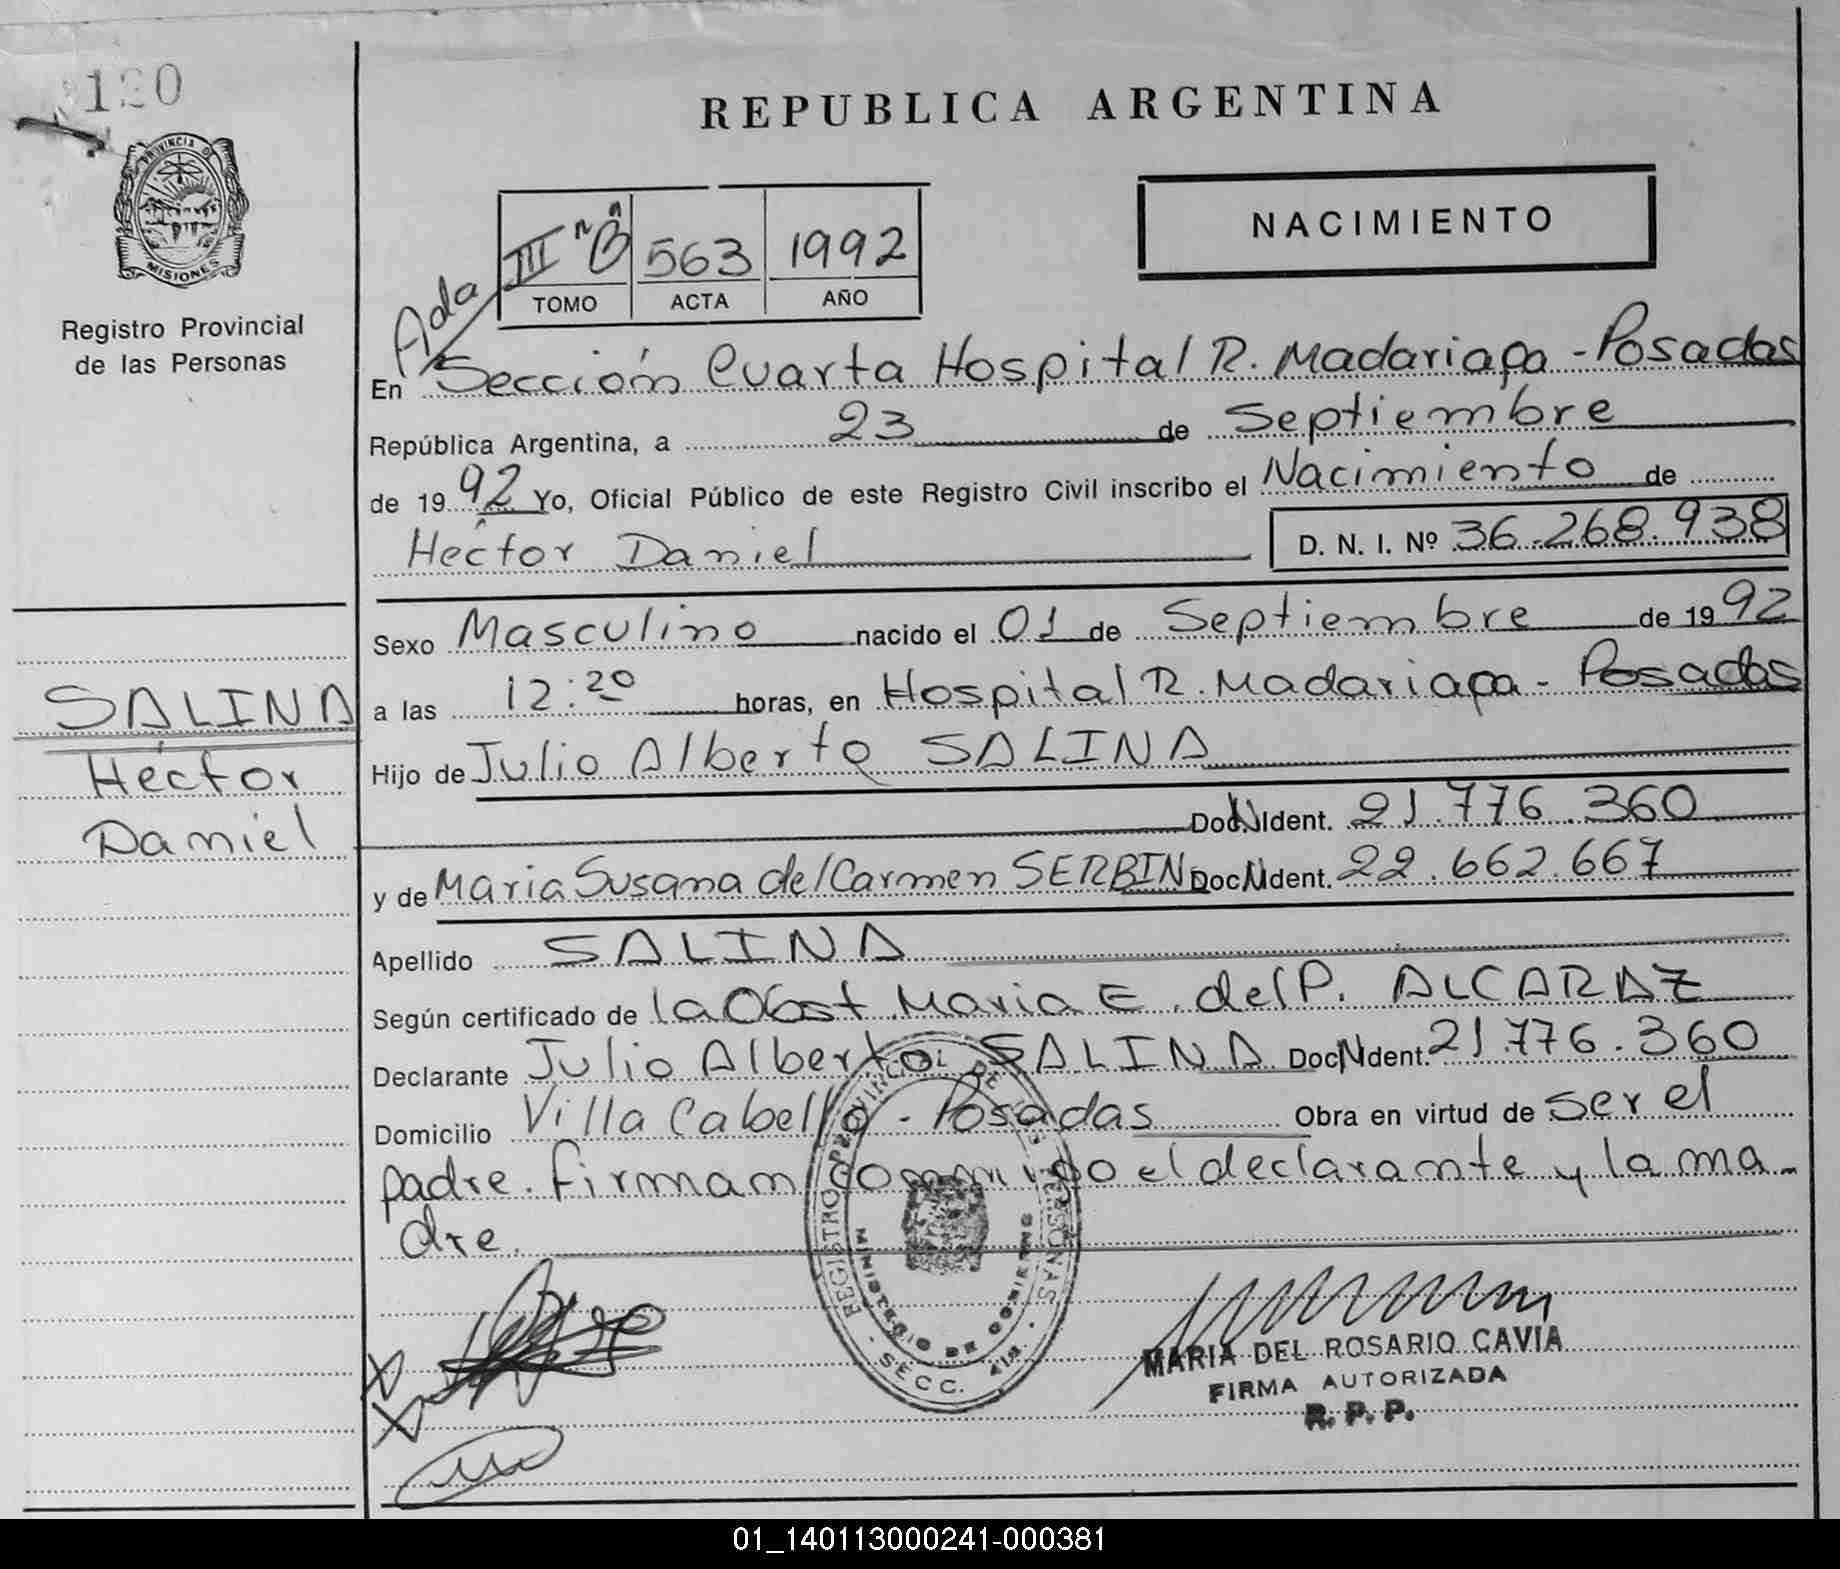 120
PROVINCIA D
MISIONES
Registro Provincial
de las Personas
SALINA
Héctor
Daniel
REPUBLICA ARGENTINA
NACIMIENTO
III "B" 563 1992
TOMO ACTA AÑO
Ada
En Sección Cuarta Hospital R. Madariaga - Posadas
República Argentina, a 23 de Septiembre
de 1992 Yo, Oficial Público de este Registro Civil inscribo el Nacimiento de
Héctor Daniel D. N. I. Nº 36.268.938
Sexo Masculino nacido el 01 de Septiembre de 1992
a las 12:20 horas, en Hospital R. Madariaga - Posadas
Hijo de Julio Alberto SALINA
Doc. N. Ident. 21.776.360
y de Maria Susana del Carmen SERBIN Doc N Ident. 22.662.667
Apellido SALINA
Según certificado de la Obst Maria E. del P. ALCARAZ
Declarante Julio Alberto SALINA Doc N Ident. 21.776.360
Domicilio Villa Cabello - Posadas Obra en virtud de ser el
padre. firman conmigo el declarante y la ma-
dre.
REGISTRO PROVINCIAL DE LAS PERSONAS
MINISTERIO DE GOBIERNO
SECC. 4ta
MARIA DEL ROSARIO CAVIA
FIRMA AUTORIZADA
R. P. P.
01_140113000241-000381